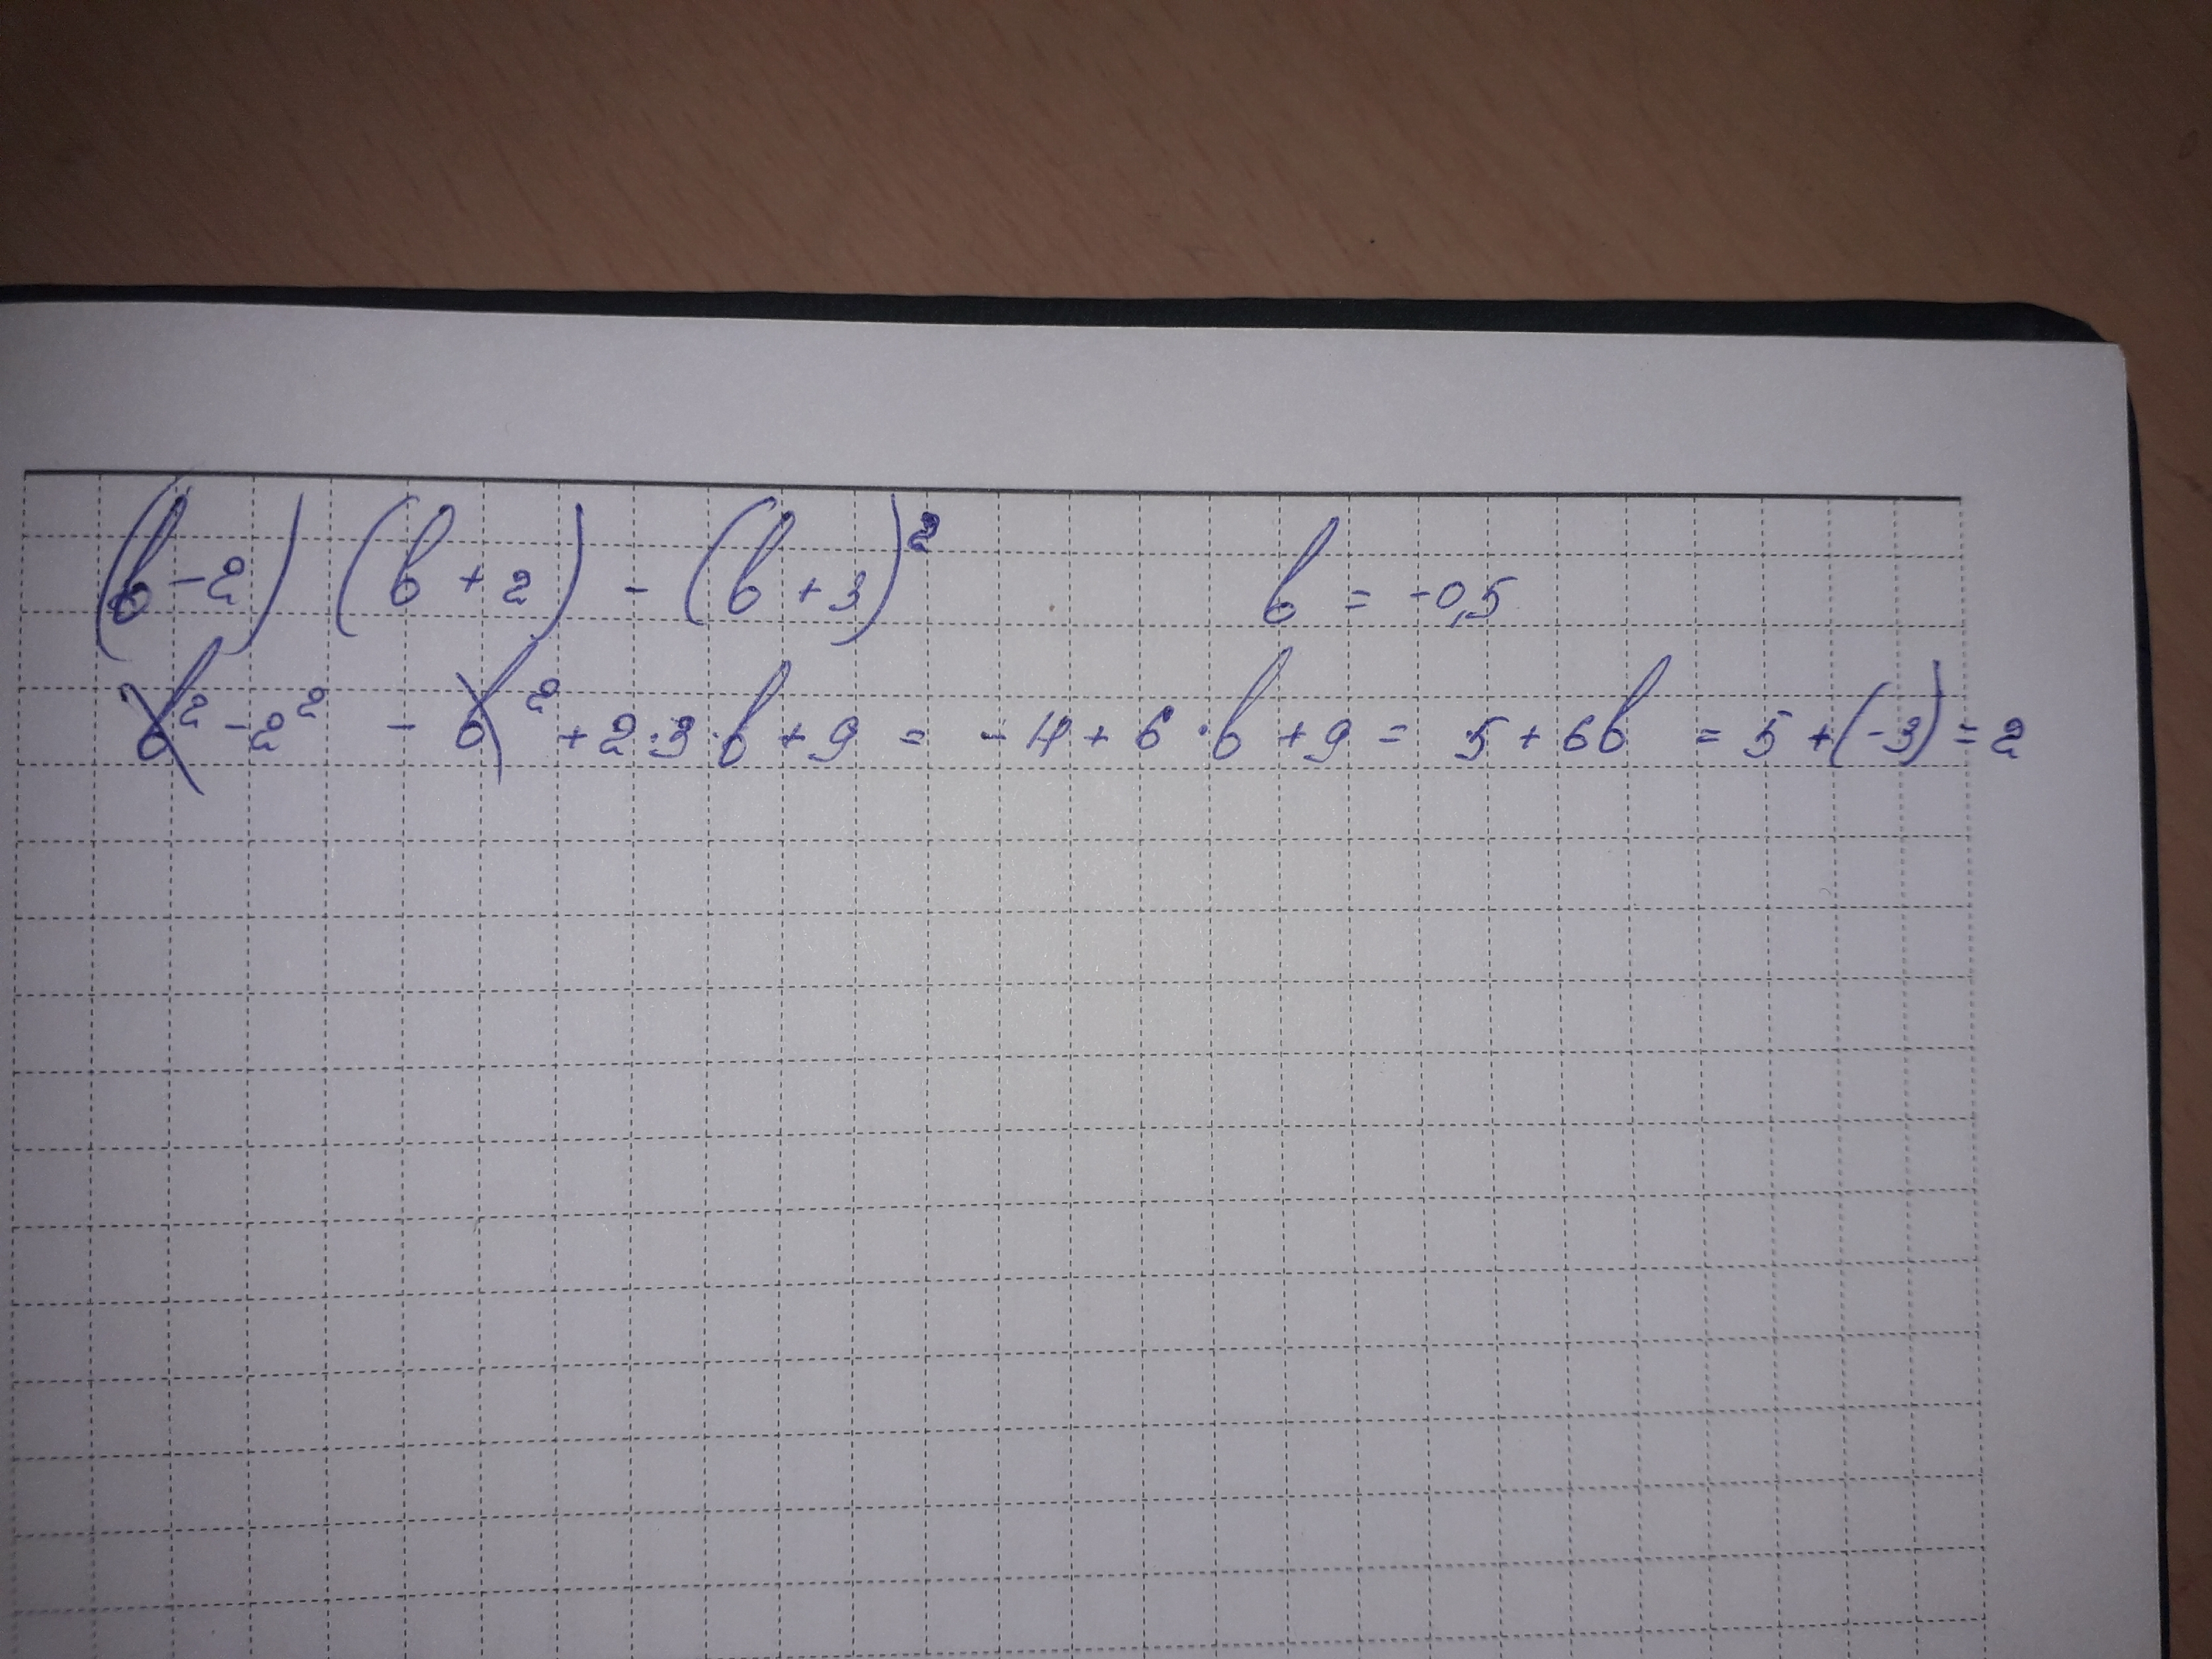 (b-2) (b+2) - (b+3)² b = -0,5
b² - 2² - b² + 2·3·b + 9 = -4 + 6·b + 9 = 5 + 6b = 5 + (-3) = 2